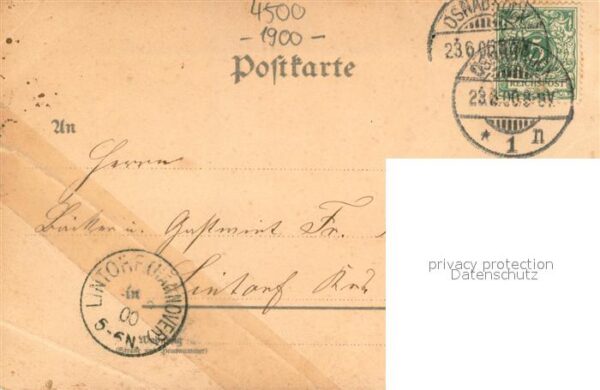 4500
- 1900 -
Postkarte
OSNABRÜCK
23.6.00.8-9V.
* 1 n
5
REICHSPOST
An
Herrn
Bäcker u. Gastwirt Fr.
Lintorf Krs
LINTORF (HANNOVER)
00
5-6N.
privacy protection
Datenschutz